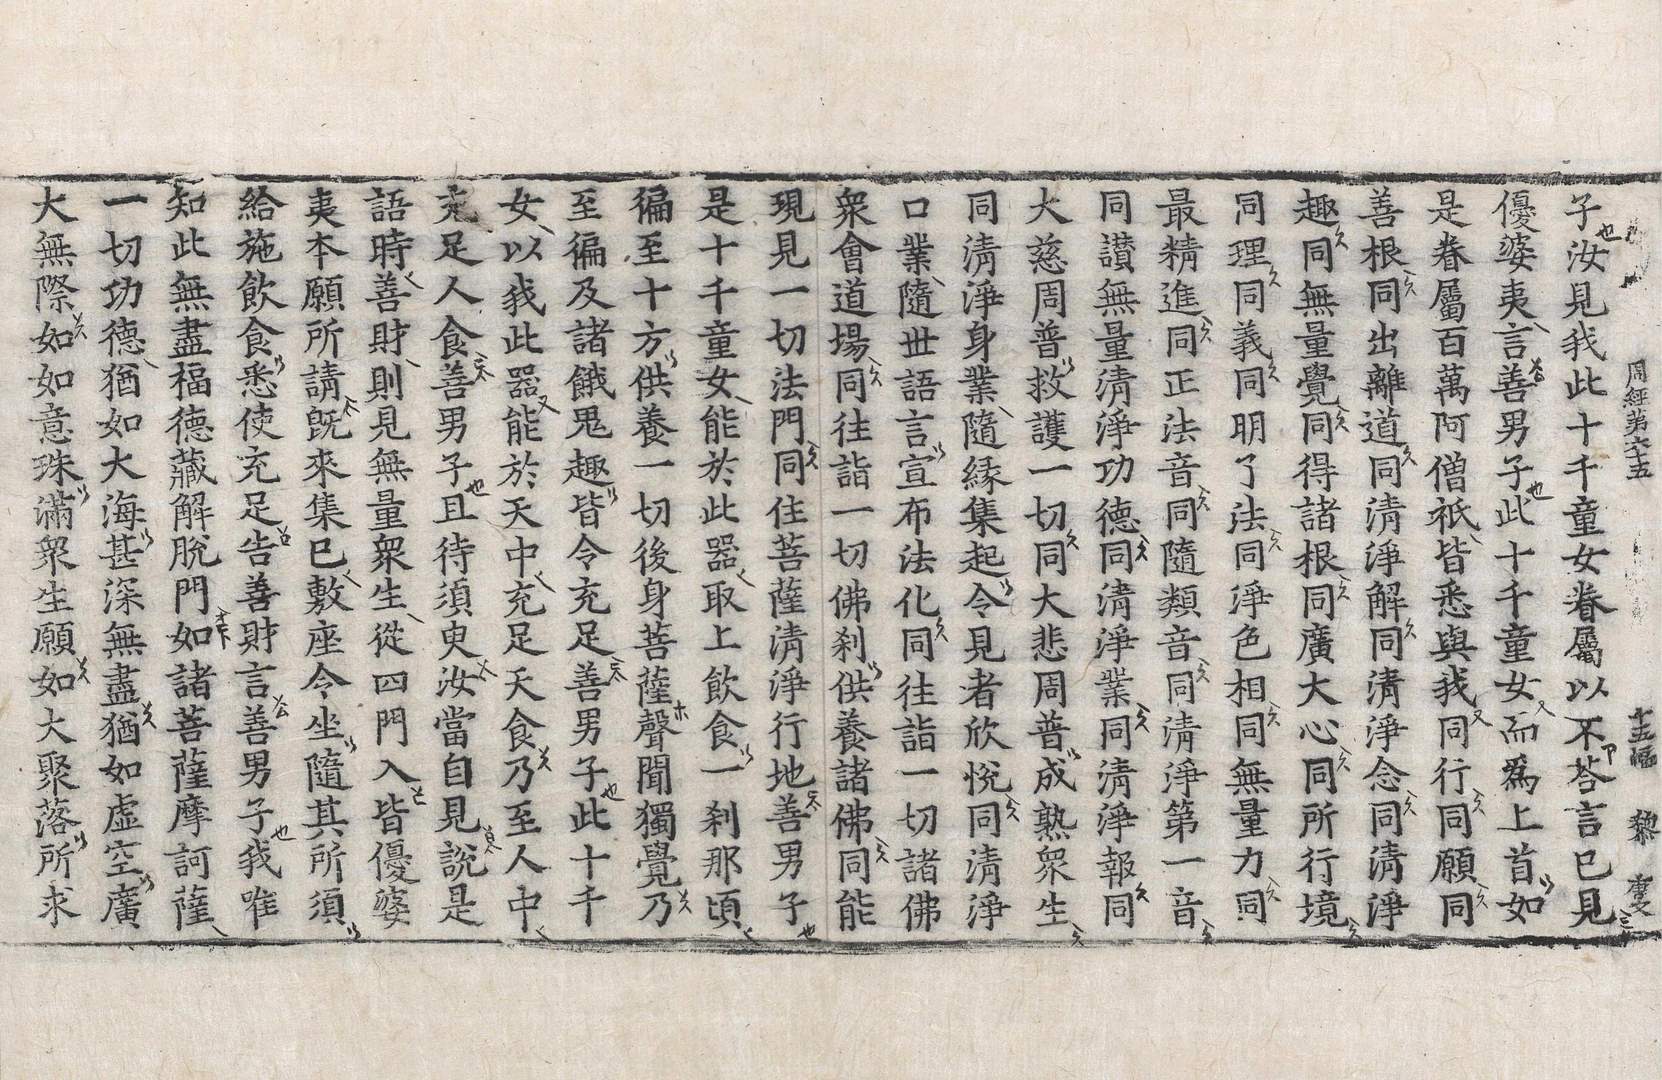 周經第六十五 十五幅 黎 虔
子汝見我此十千童女眷屬以不荅言已見
優婆夷言善男子此十千童女而爲上首如
是眷屬百萬阿僧祇皆悉與我同行同願同
善根同出離道同清淨解同清淨念同清淨
趣同無量覺同得諸根同廣大心同所行境
同理同義同明了法同淨色相同無量力同
最精進同正法音同隨類音同清淨第一音
同讃無量清淨功德同清淨業同清淨報同
大慈周普救護一切同大悲周普成熟衆生
同清淨身業隨縁集起令見者欣悅同清淨
口業隨世語言宣布法化同往詣一切諸佛
衆會道場同往詣一切佛刹供養諸佛同能
現見一切法門同住菩薩清淨行地善男子
是十千童女能於此器取上飲食一刹那頃
徧至十方供養一切後身菩薩聲聞獨覺乃
至徧及諸餓鬼趣皆令充足善男子此十千
女以我此器能於天中充足天食乃至人中
充足人食善男子且待須臾汝當自見說是
語時善財則見無量衆生從四門入皆優婆
夷本願所請旣來集已敷座令坐隨其所須
給施飲食悉使充足告善財言善男子我唯
知此無盡福德藏解脫門如諸菩薩摩訶薩
一切功德猶如大海甚深無盡猶如虛空廣
大無際如如意珠滿衆生願如大聚落所求